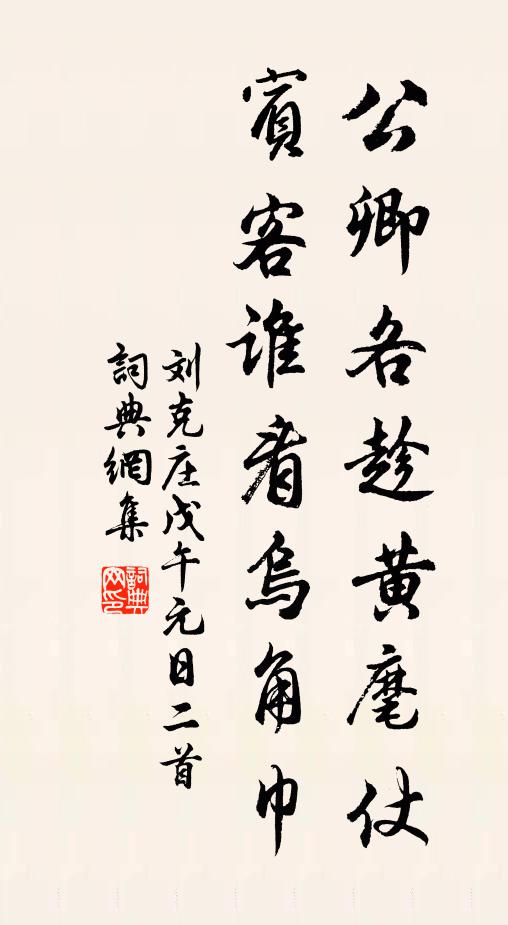 公卿各趁黄麾仗
賓客誰看烏角巾
刘克庄戊午元日二首
詞典網集
詞典网印